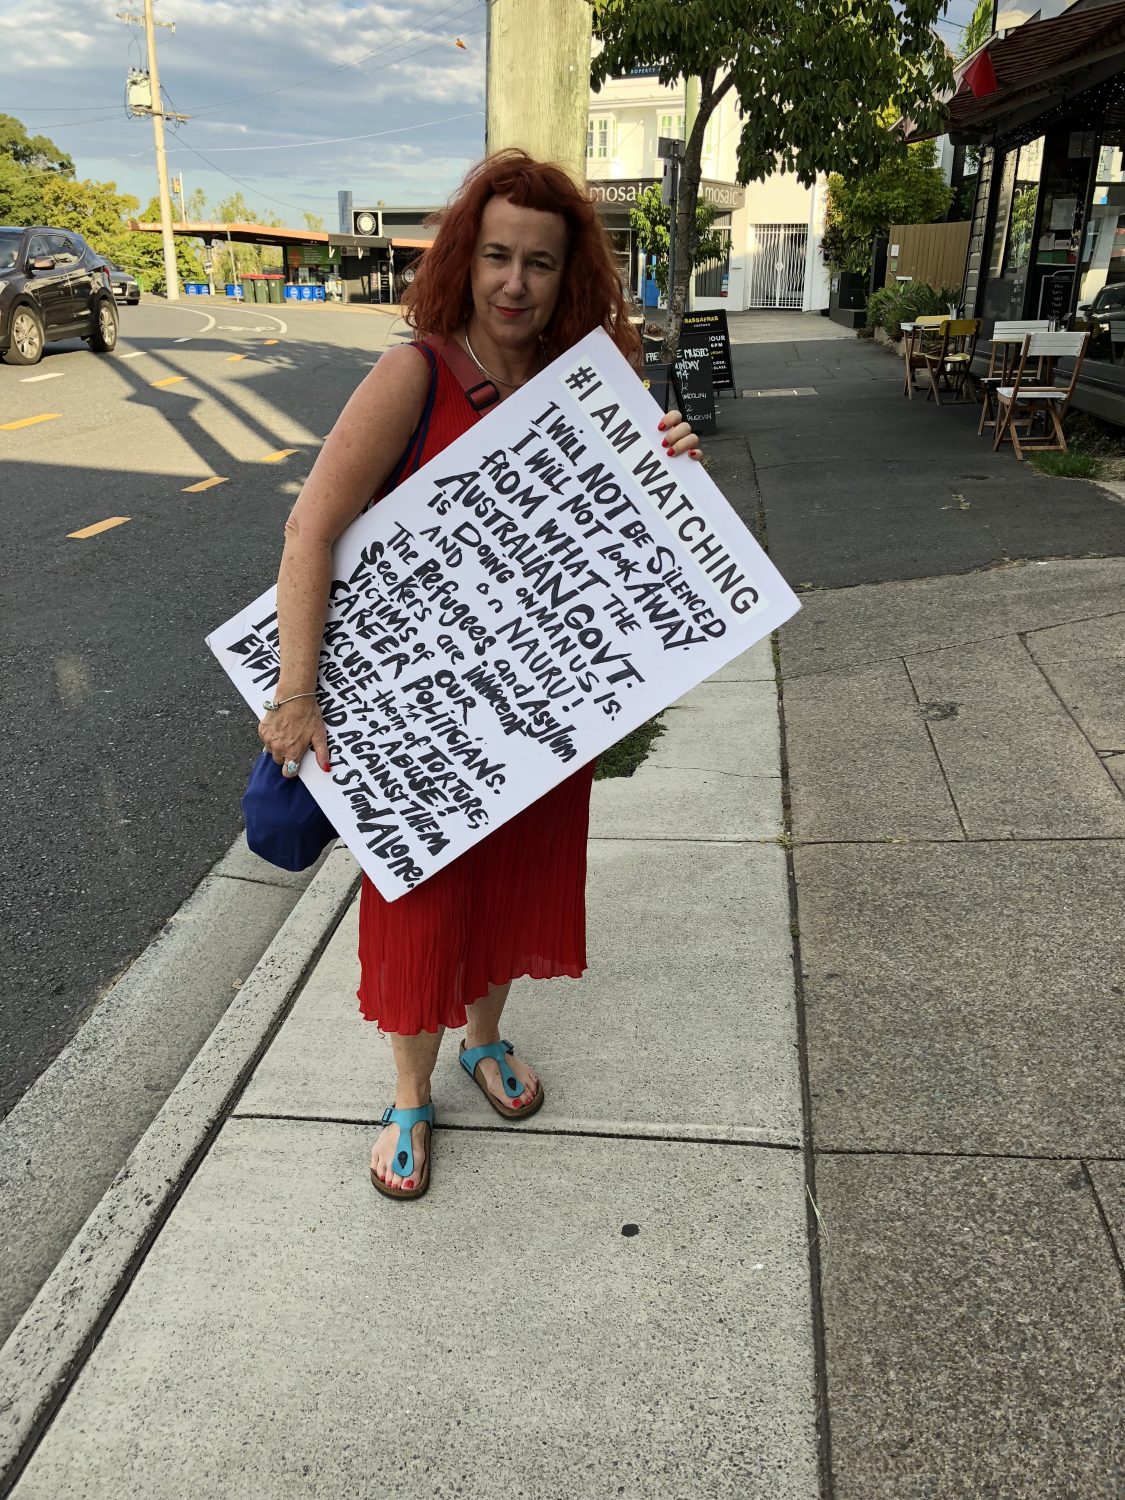 #I AM WATCHING
I WILL NOT BE SILENCED
I WILL NOT LOOK AWAY.
FROM WHAT THE
AUSTRALIAN GOVT.
is DOING ON MANUS Is.
AND on NAURU!
The Refugees and Asylum
Seekers are innocent
Victims of OUR
CAREER POLITICIANS.
ACCUSE them of TORTURE,
CRUELTY, of ABUSE!
STAND AGAINST THEM
EVEN STAND ALONE.
mosaic
mosaic
SASSAFRAS
HOUR
FREE MUSIC